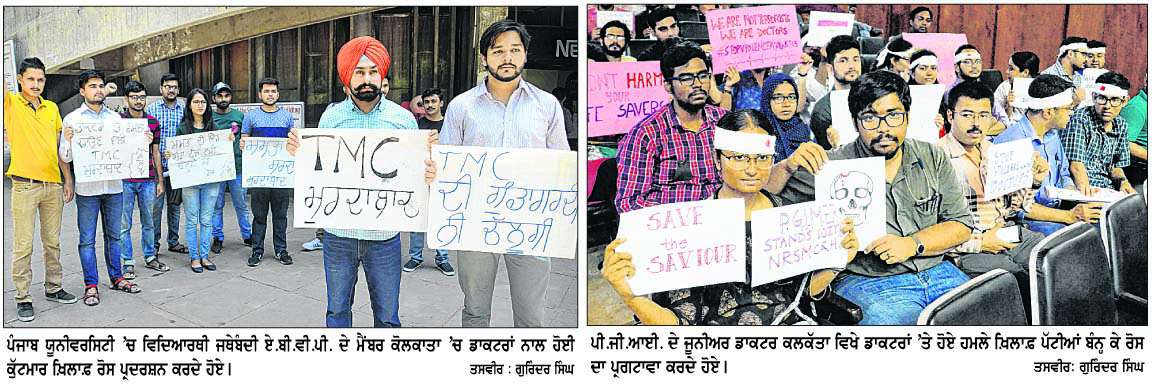 NE
TMC
ਮੁਰਦਾਬਾਦ
TMC
ਦੀ ਗੁੰਡਾਗਰਦੀ
ਨੀ ਚੱਲਣੀ
TMC
ਮੁਰਦਾਬਾਦ
ਪੰਜਾਬ ਯੂਨੀਵਰਸਿਟੀ ’ਚ ਵਿਦਿਆਰਥੀ ਜਥੇਬੰਦੀ ਏ.ਬੀ.ਵੀ.ਪੀ. ਦੇ ਮੈਂਬਰ ਕੋਲਕਾਤਾ ’ਚ ਡਾਕਟਰਾਂ ਨਾਲ ਹੋਈ
ਕੁੱਟਮਾਰ ਖ਼ਿਲਾਫ਼ ਰੋਸ ਪ੍ਰਦਰਸ਼ਨ ਕਰਦੇ ਹੋਏ।
ਤਸਵੀਰ : ਗੁਰਿੰਦਰ ਸਿੰਘ
WE ARE NOT TERRORISTS
WE ARE DOCTORS
HARM
YOUR
SAVERS
SAVE
the
SAVIOUR
PGIMER
STANDS WITH
NRSMC&H
ਪੀ.ਜੀ.ਆਈ. ਦੇ ਜੂਨੀਅਰ ਡਾਕਟਰ ਕਲਕੱਤਾ ਵਿਖੇ ਡਾਕਟਰਾਂ ’ਤੇ ਹੋਏ ਹਮਲੇ ਖ਼ਿਲਾਫ਼ ਪੱਟੀਆਂ ਬੰਨ੍ਹ ਕੇ ਰੋਸ
ਦਾ ਪ੍ਰਗਟਾਵਾ ਕਰਦੇ ਹੋਏ।
ਤਸਵੀਰ: ਗੁਰਿੰਦਰ ਸਿੰਘ